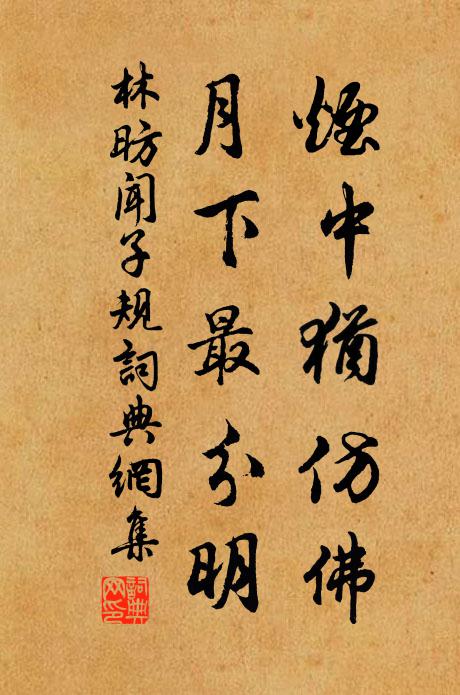 煙中猶仿佛
月下最分明
林昉聞子規詞典網集
詞典
网印